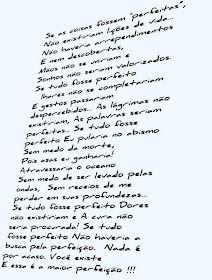 Se as coisas fossem "perfeitas",
Não existiriam lições de vida...
Não haveria arrependimentos
E nem descobertas,
Mãos não se uniriam e
Sonhos não seriam valorizados.
Se tudo fosse perfeito
lhares não se completariam
E gestos passariam
despercebidos... As lágrimas não
existiriam, As palavras seriam
perfeitas... Se tudo fosse
perfeito Eu pularia no abismo
Sem medo da morte,
Pois asas eu ganharia!
Atravessaria o oceano
Sem medo de ser levado pelas
ondas, Sem receios de me
perder em suas profundezas...
Se tudo fosse perfeito Dores
não existiriam e A cura não
seria procurada! Se tudo
fosse perfeito Não haveria a
busca pela perfeição. Nada é
por acaso. Você existe
E essa é a maior perfeição !!!